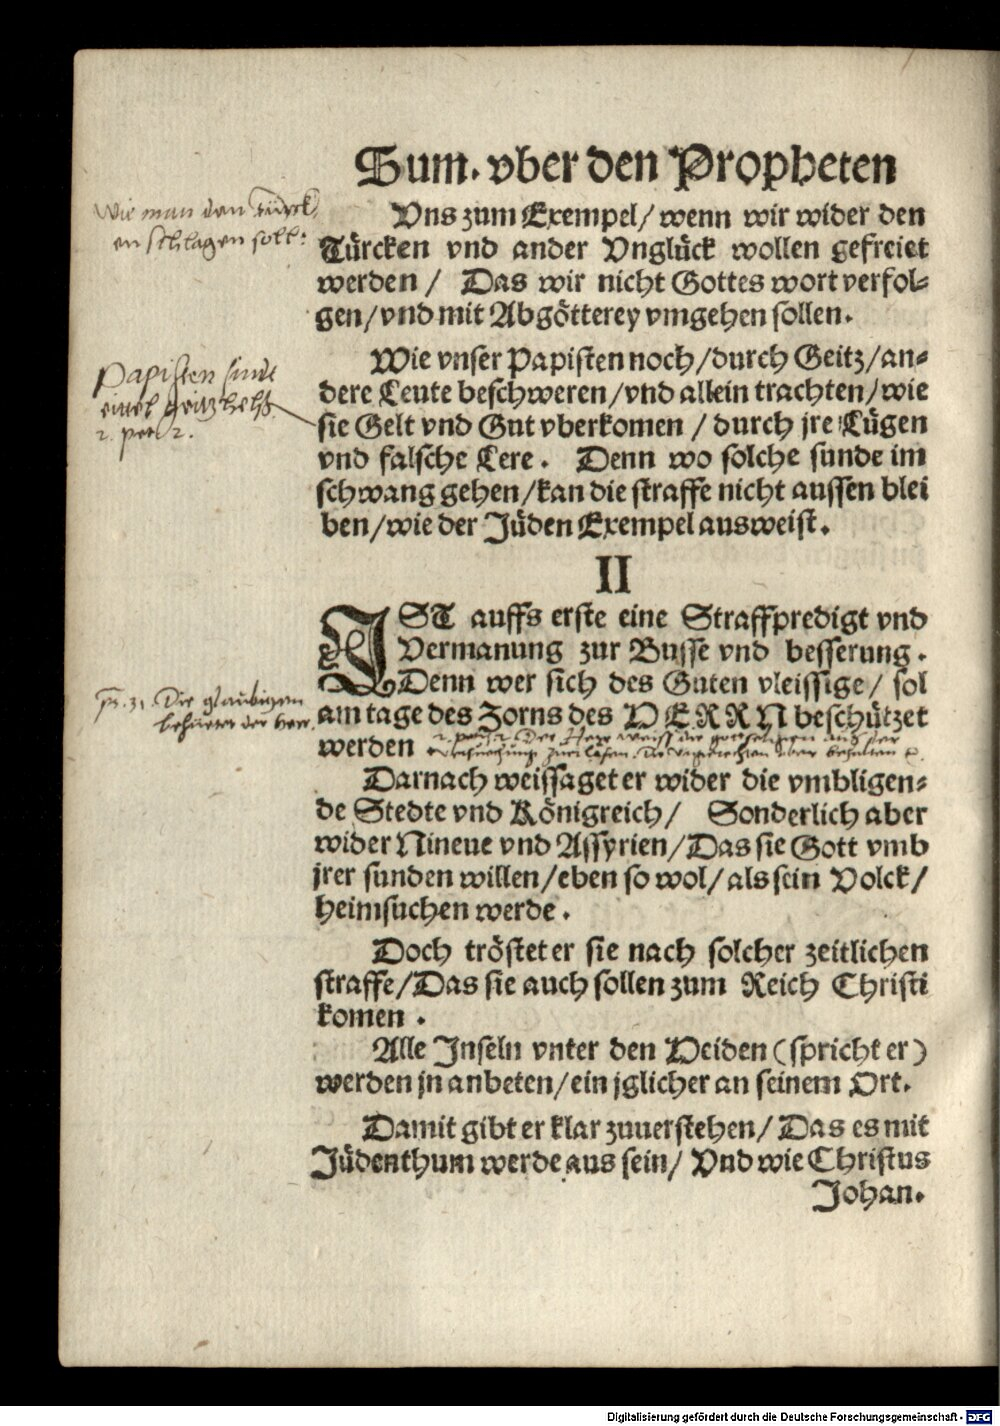 Sum. vber den Propheten
Wie man den Türck
en schlagen soll:
Vns zum Exempel/ wenn wir wider den
Türcken vnd ander Vnglück wollen gefreiet
werden / Das wir nicht Gottes wort verfol-
gen/vnd mit Abgötterey vmgehen sollen.
Wie vnser Papisten noch/durch Geitz/an-
dere Leute beschweren/vnd allein trachten/wie
sie Gelt vnd Gut vberkomen / durch jre Lügen
vnd falsche Lere. Denn wo solche sunde im
schwang gehen/kan die straffe nicht aussen blei
ben/wie der Jüden Exempel ausweist.
Papisten sindt
eittel geitzhelß
2. pet. 2.
II
IST auffs erste eine Straffpredigt vnd
Vermanung zur Busse vnd besserung.
Denn wer sich des Guten vleissige/ sol
am tage des Zorns des HERRN beschützet
werden
ps. 31. Die glaubigen
behütet der Herr.
2. pet. 2. Der Herr weiss die gottseligen aus der
versuchung zuerlösen. die vngerechten aber behalten
Darnach weissaget er wider die vmbligen-
de Stedte vnd Königreich/ Sonderlich aber
wider Nineue vnd Assyrien/Das sie Gott vmb
jrer sunden willen/eben so wol/als sein Volck/
heimsuchen werde.
Doch tröstet er sie nach solcher zeitlichen
straffe/Das sie auch sollen zum Reich Christi
komen.
Alle Inseln vnter den Heiden (spricht er)
werden jn anbeten/ein jglicher an seinem Ort.
Damit gibt er klar zuuerstehen/ Das es mit
Jüdenthum werde aus sein/ Vnd wie Christus
Johan.
Digitalisierung gefördert durch die Deutsche Forschungsgemeinschaft - DFG